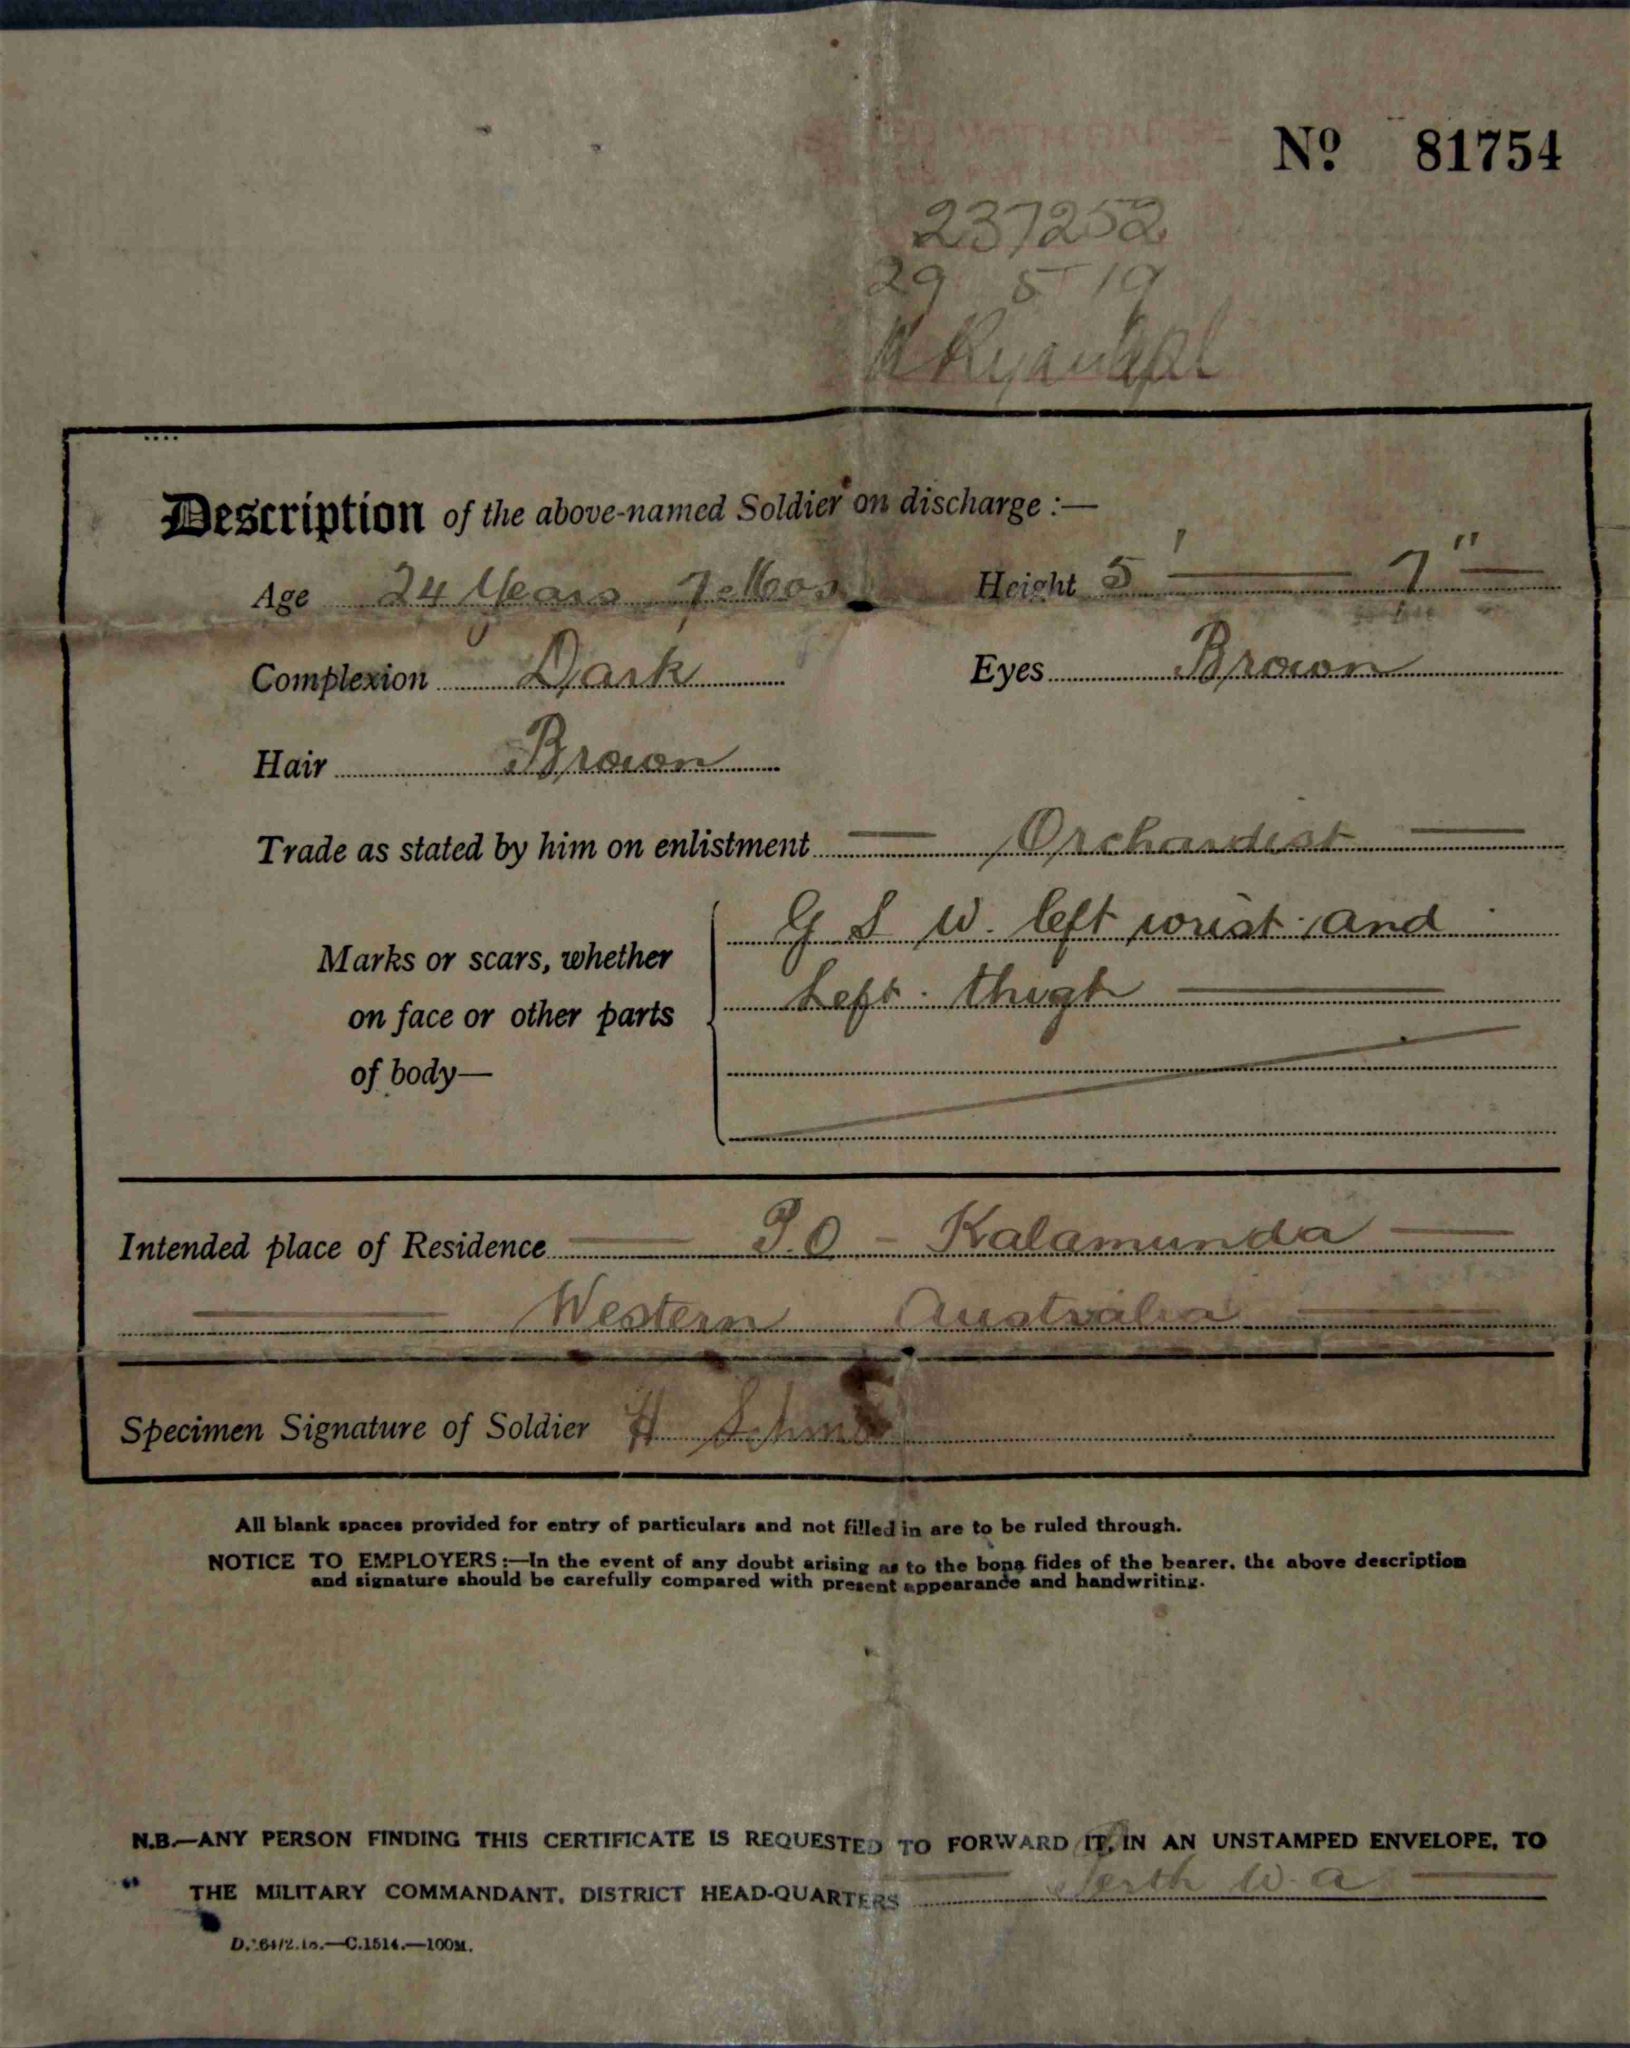 No 81754
237252
29 5 19
Description of the above-named Soldier on discharge :—
Age 24 Years 7 Mos Height 5' 7"
Complexion Dark Eyes Brown
Hair Brown
Trade as stated by him on enlistment Orchardist
Marks or scars, whether on face or other parts of body—
G S W. left wrist and
Left thigh
Intended place of Residence P.O - Kalamunda
Western Australia
Specimen Signature of Soldier H
All blank spaces provided for entry of particulars and not filled in are to be ruled through.
NOTICE TO EMPLOYERS :—In the event of any doubt arising as to the bona fides of the bearer, the above description
and signature should be carefully compared with present appearance and handwriting.
N.B.—ANY PERSON FINDING THIS CERTIFICATE IS REQUESTED TO FORWARD IT, IN AN UNSTAMPED ENVELOPE, TO
THE MILITARY COMMANDANT, DISTRICT HEAD-QUARTERS Perth W.A
C.1514.—100M.